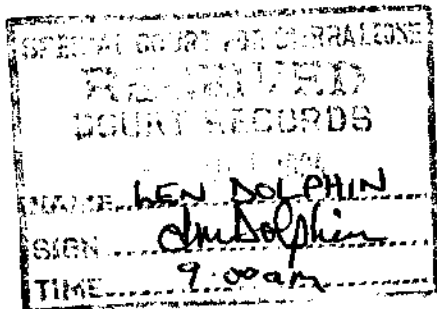 SPECIAL COURT FOR SIERRA LEONE
RECEIVED
COURT RECORDS
NAME LEN DOLPHIN
SIGN LmDolphin
TIME 9.00am